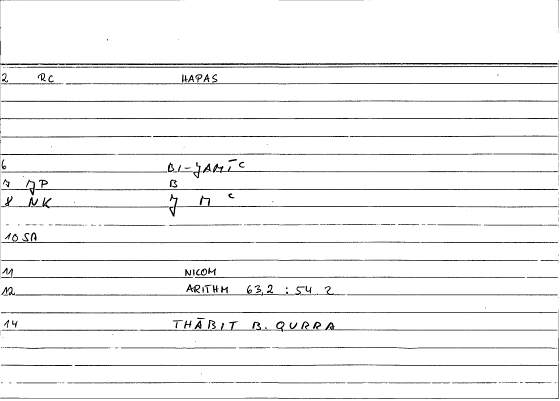 2 RC HAPAS
6 BI-JAMĪC
7 JP B
8 NK J M C
10 SA
11 NICOM
12 ARITHM 63,2 : 54 2
14 THĀBIT B. QURRA